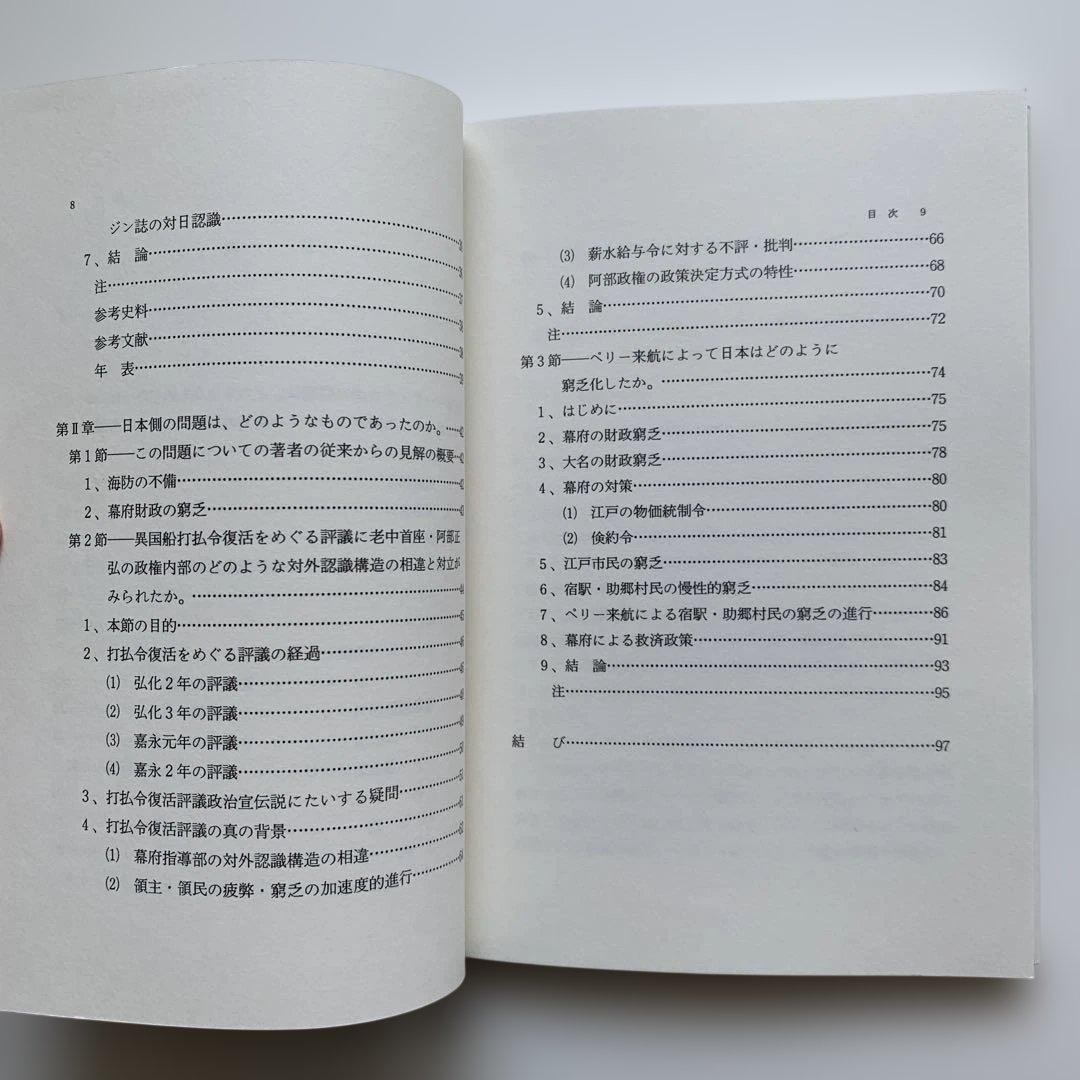 8
ジン誌の対日認識
7、結　論
注
参考史料
参考文献
年　表
第Ⅱ章――日本側の問題は、どのようなものであったのか。
第1節――この問題についての著者の従来からの見解の概要
1、海防の不備
2、幕府財政の窮乏
第2節――異国船打払令復活をめぐる評議に老中首座・阿部正
弘の政権内部のどのような対外認識構造の相違と対立が
みられたか。
1、本節の目的
2、打払令復活をめぐる評議の経過
(1)　弘化2年の評議
(2)　弘化3年の評議
(3)　嘉永元年の評議
(4)　嘉永2年の評議
3、打払令復活評議政治宣伝説にたいする疑問
4、打払令復活評議の真の背景
(1)　幕府指導部の対外認識構造の相違
(2)　領主・領民の疲弊・窮乏の加速度的進行
目　次　9
(3)　薪水給与令に対する不評・批判……66
(4)　阿部政権の政策決定方式の特性……68
5、結　論……70
注……72
第3節――ペリー来航によって日本はどのように
窮乏化したか。……74
1、はじめに……75
2、幕府の財政窮乏……75
3、大名の財政窮乏……78
4、幕府の対策……80
(1)　江戸の物価統制令……80
(2)　倹約令……81
5、江戸市民の窮乏……83
6、宿駅・助郷村民の慢性的窮乏……84
7、ペリー来航による宿駅・助郷村民の窮乏の進行……86
8、幕府による救済政策……91
9、結　論……93
注……95
結　び……97